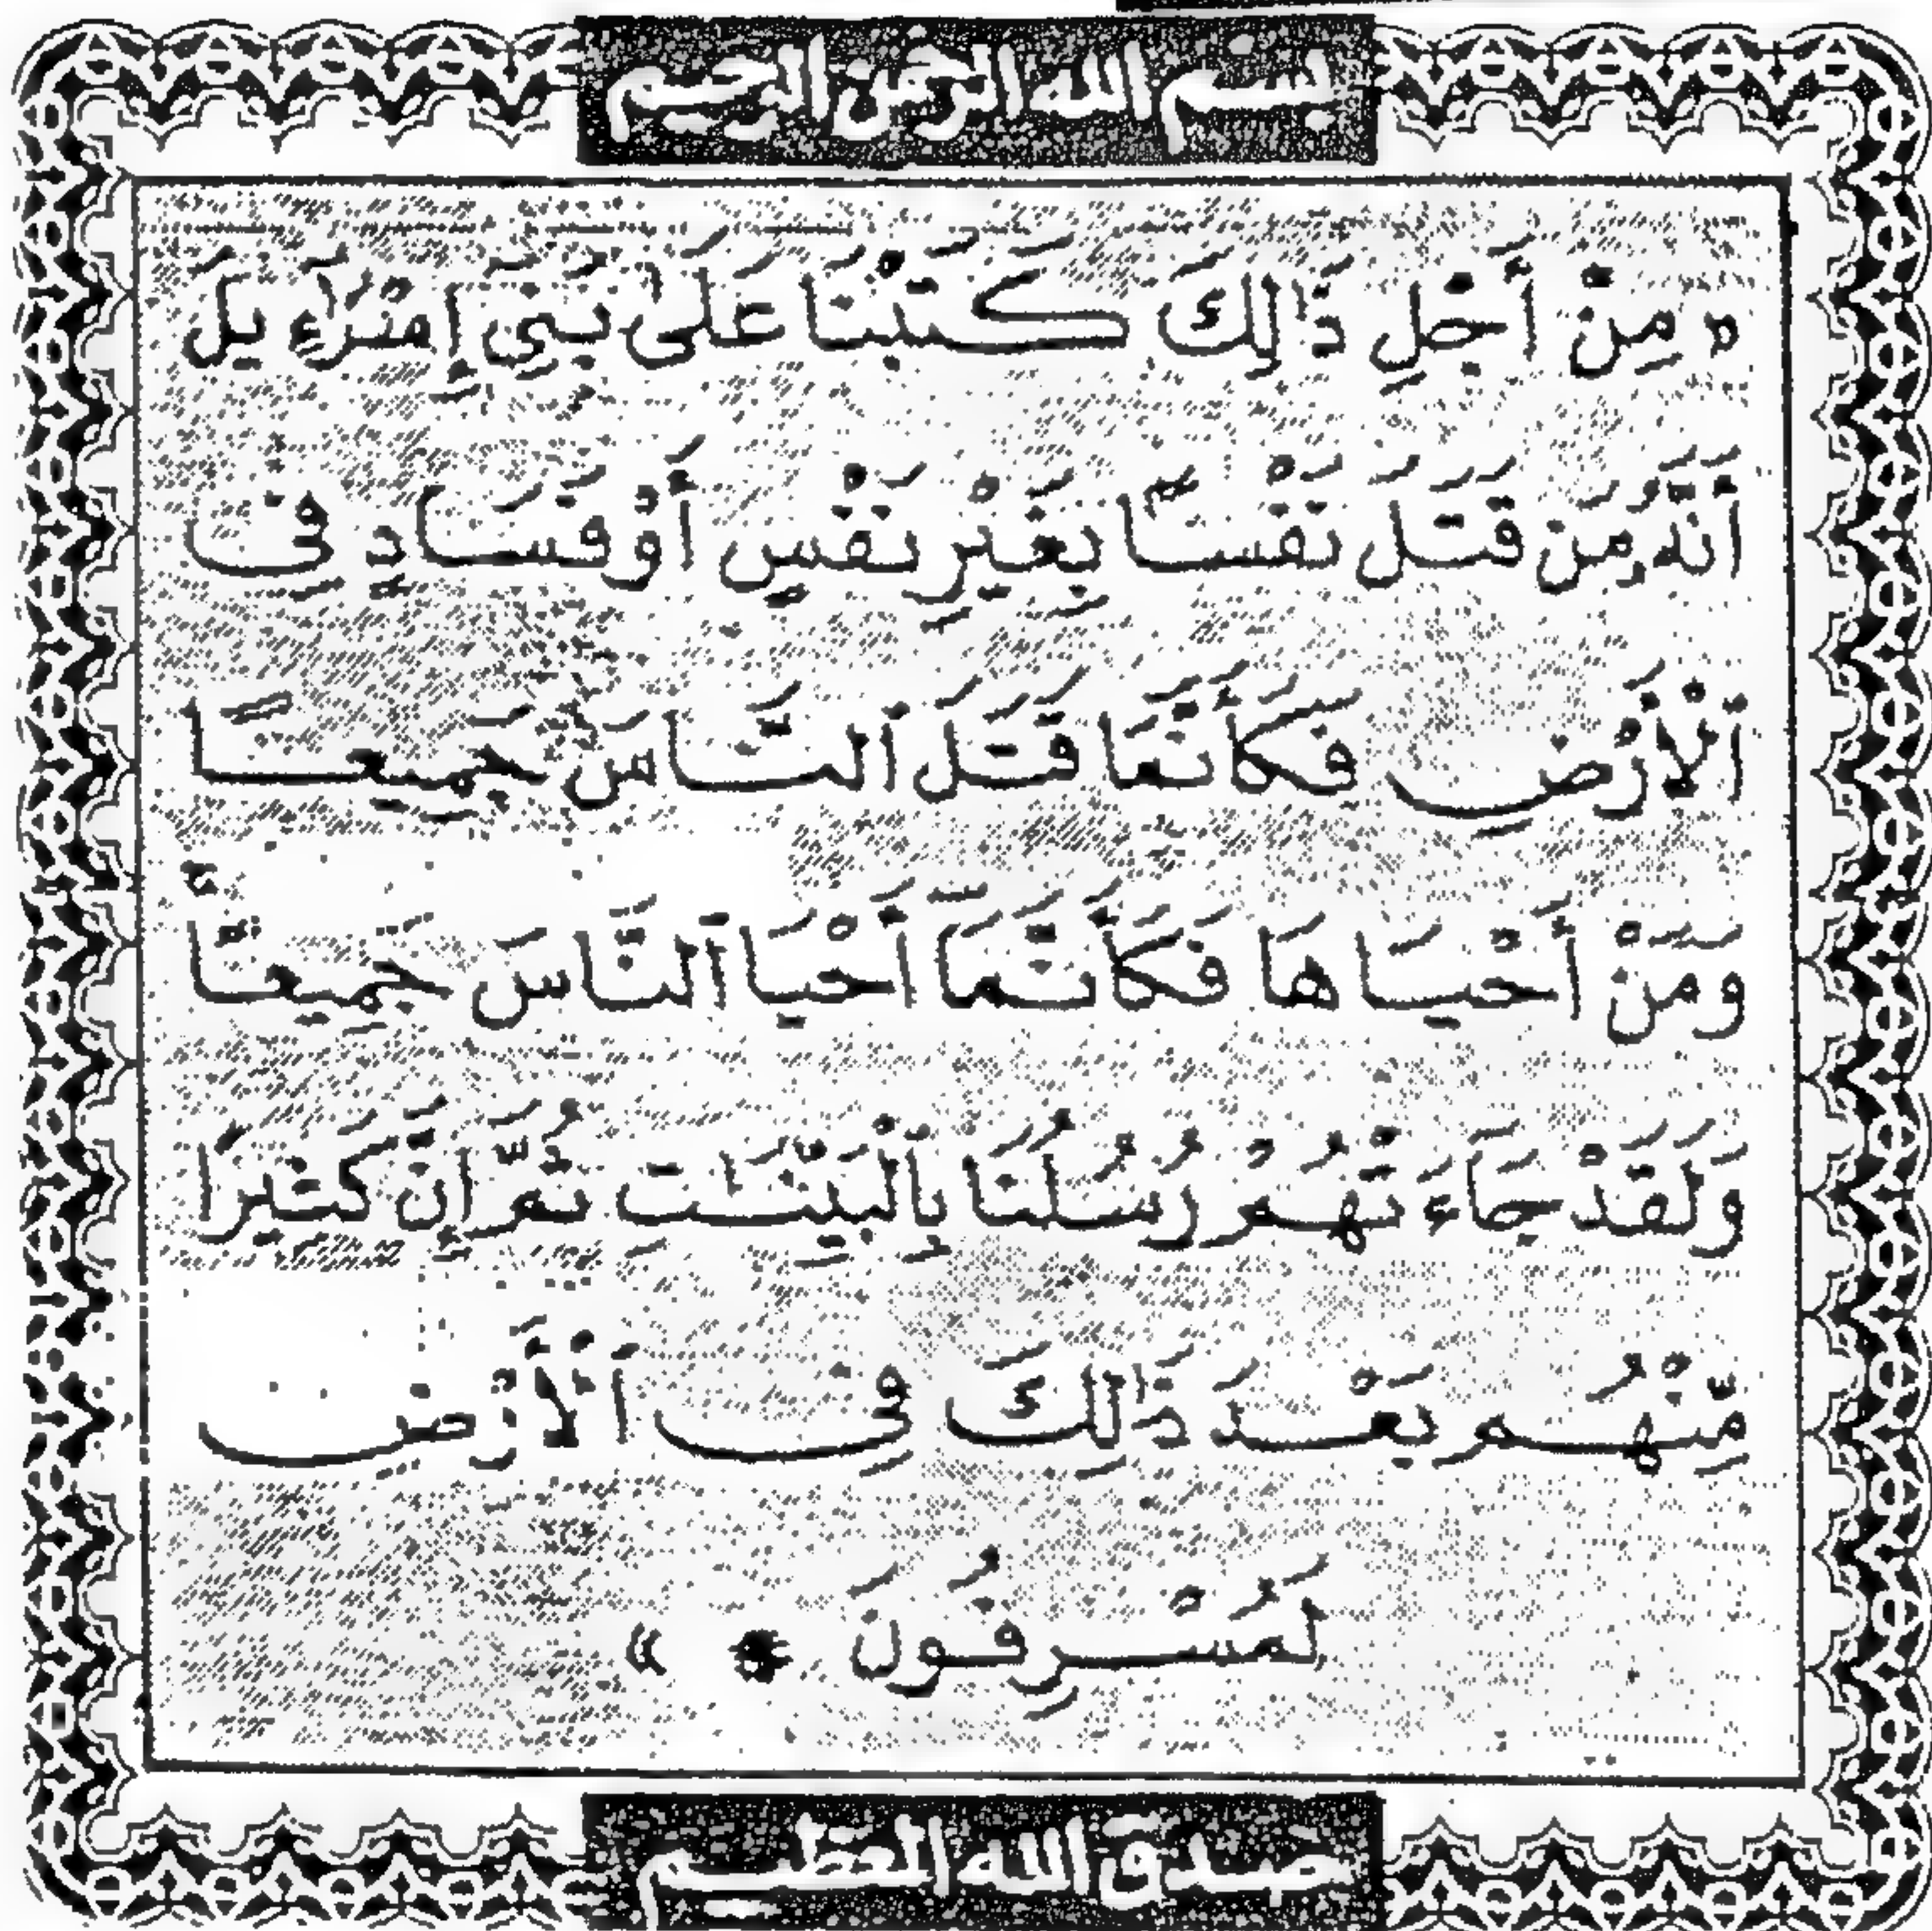 بسم الله الرحمن الرحيم
مِنْ أَجْلِ ذَٰلِكَ كَتَبْنَا عَلَىٰ بَنِي إِسْرَٰٓءِيلَ
أَنَّهُۥ مَن قَتَلَ نَفْسًا بِغَيْرِ نَفْسٍ أَوْ فَسَادٍ فِى
ٱلْأَرْضِ فَكَأَنَّمَا قَتَلَ ٱلنَّاسَ جَمِيعًا
وَمَنْ أَحْيَاهَا فَكَأَنَّمَآ أَحْيَا ٱلنَّاسَ جَمِيعًا
وَلَقَدْ جَآءَتْهُمْ رُسُلُنَا بِٱلْبَيِّنَٰتِ ثُمَّ إِنَّ كَثِيرًا
مِّنْهُم بَعْدَ ذَٰلِكَ فِى ٱلْأَرْضِ
لَمُسْرِفُونَ »
صدق الله العظيم